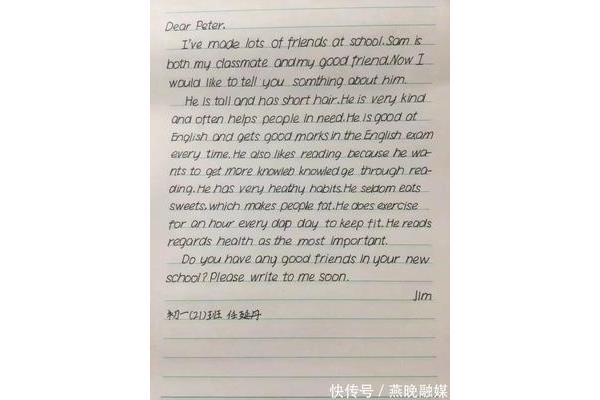 Dear Peter.
I've made lots of friends at school. Sam is
both my classmate and my good friend. Now I
would like to tell you somthing about him.
He is tall and has short hair. He is very kind
and often helps people in need. He is good at
English and gets good marks in the English exam
every time. He also likes reading because he wa-
nts to get more knowleb knowledge through rea-
ding. He has very heathy habits. He seldom eats
sweets, which makes people fat. He does exercise
for an hour every dap day to keep fit. He reads
regards health as the most important.
Do you have any good friends in your new
school? Please write to me soon.
Jim
初一(21)班 任延丹
快传号 / 燕晚融媒